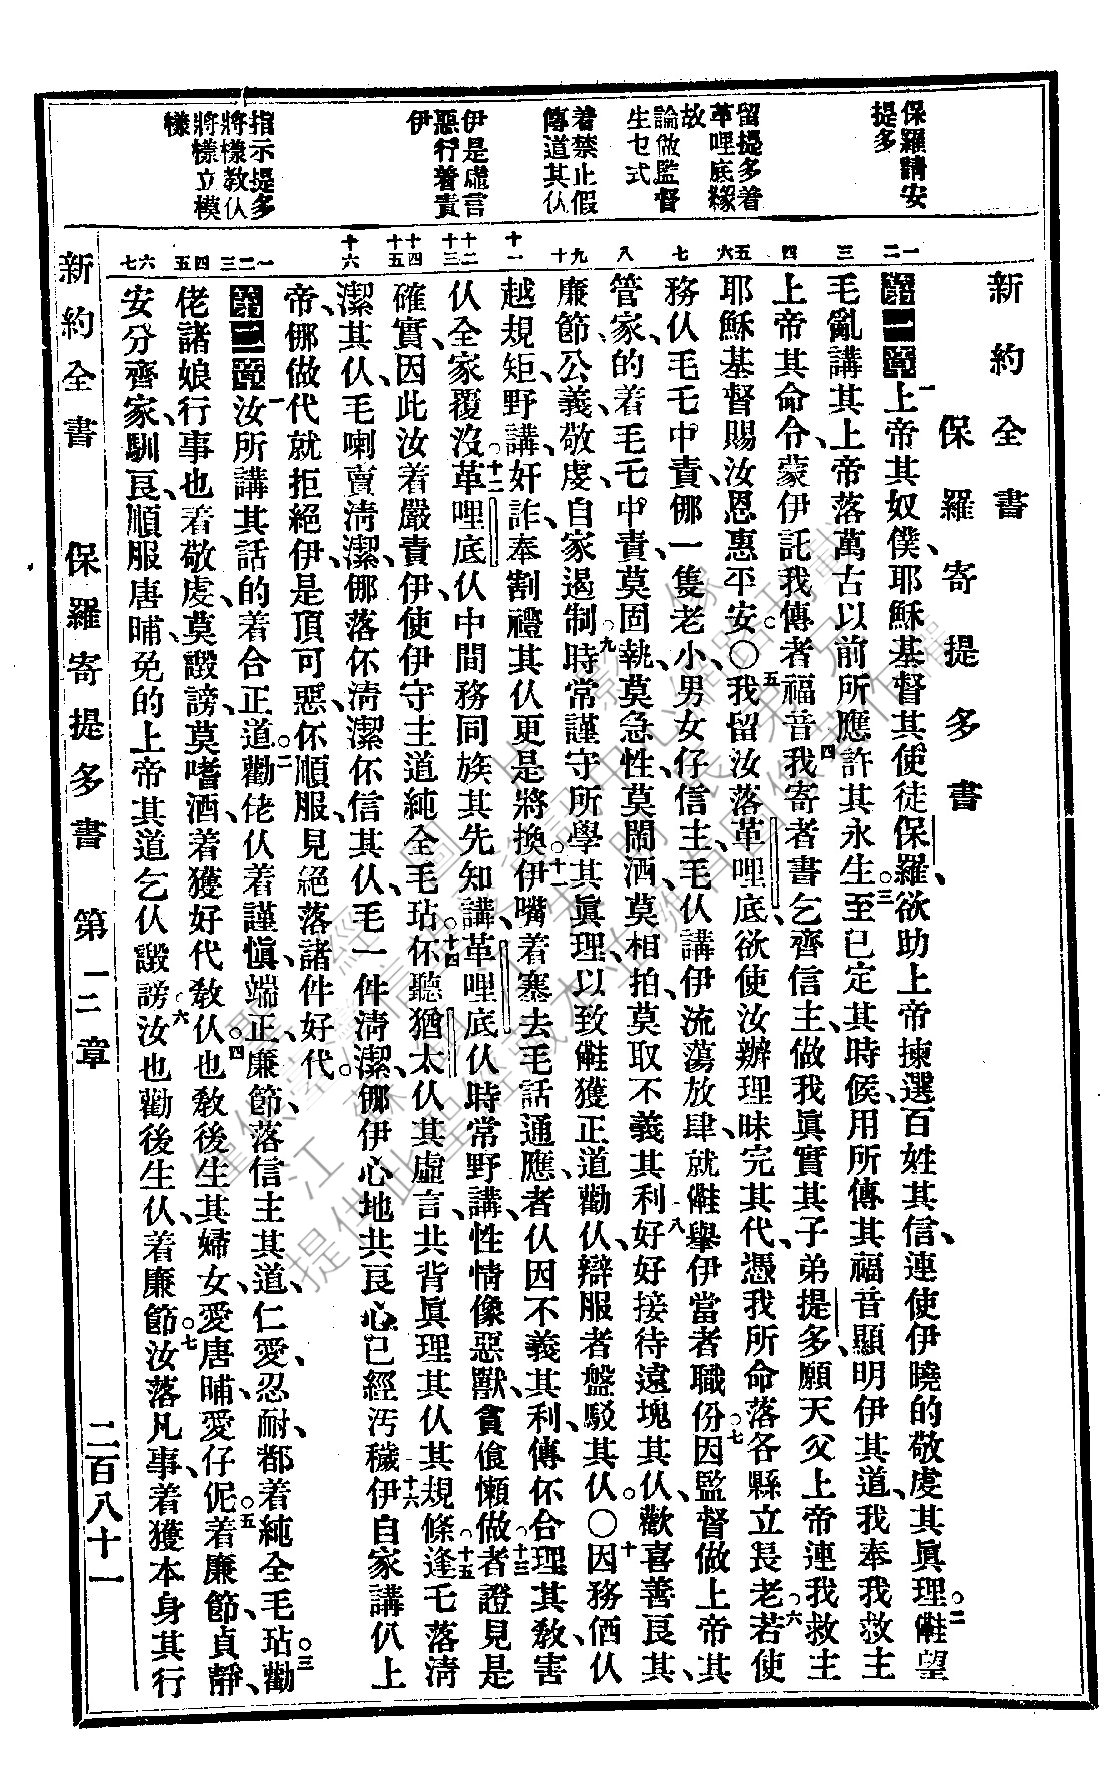 新約全書
保羅寄提多書
保羅請安
提多
留提多着
革哩底緣
故
論做監督
生乜式
着禁止假
傳道其仈
伊是虛言
惡行着責
伊
指示提多
將樣教仈
將樣立模
樣
第一章上帝其奴僕、耶穌基督其使徒保羅、欲助上帝揀選百姓其信、連使伊曉的敬虔其眞理。二
毛亂講其上帝、落萬古以前所應許其永生。三至已定其時候、用所傳其福音顯明伊其道、我奉我救主
上帝其命令、蒙伊託我傳者福音。四我寄者書乞齊信主、做我眞實其子弟提多、願天父上帝連我救主
耶穌基督、賜汝恩惠平安。〇五我留汝落革哩底、欲使汝辦理昧完其代、憑我所命落各縣立長老。六若使
務仈毛乇中責、儸一隻老小、男女仔信主、毛仈講伊流蕩放肆、就
管家、的着毛乇中責、莫固執、莫急性、莫鬧酒、莫相拍、莫取不義其利。八好好接待遠塊其仈、歡喜善良其、
廉節、公義、敬虔、自家遏制。九時常謹守所學其眞理、以致
越規矩、野講、奸詐、奉割禮其仈更是將換。十一伊嘴着塞去、毛話通應、者仈因不義其利、傳伓合理其教、害
仈全家覆沒。十二革哩底仈中間、務同族其先知講、革哩底仈時常野講、性情像惡獸、貪飡懶做。十三者證見是
確實、因此汝着嚴責伊、使伊守主道純全毛玷。十四伓聽猶太仈其虛言、共背眞理其仈其規條。十五逢乇落淸
潔其仈、毛喇賣淸潔、儸落伓淸潔伓信其仈、毛一件淸潔。儸伊心地共良心、已經汚穢。十六伊自家講仈上
帝、儸做代就拒絕、伊是頂可惡、伓順服、見絕落諸件好代。
第二章汝所講其話、的着合正道。二勸佬仈着謹愼、端正、廉節、落信主其道、仁愛、忍耐、都着純全毛玷。三勸
佬諸娘行事也着敬虔、莫譭謗、莫嗜酒、着獲好代敎仈。四也敎後生其婦女、愛唐晡、愛仔伲。五着廉節、貞靜、
安分齊家、馴良、順服唐晡、免的上帝其道乞仈譭謗。六汝也勸後生仈、着廉節。七汝落凡事、着獲本身其行
新約全書 保羅寄提多書 第一二章 二百八十一